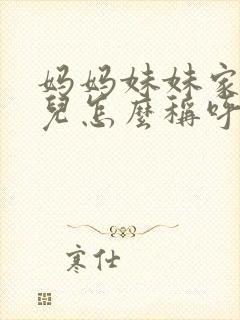 妈妈妹妹家
兒怎麼稱呼
寒仕